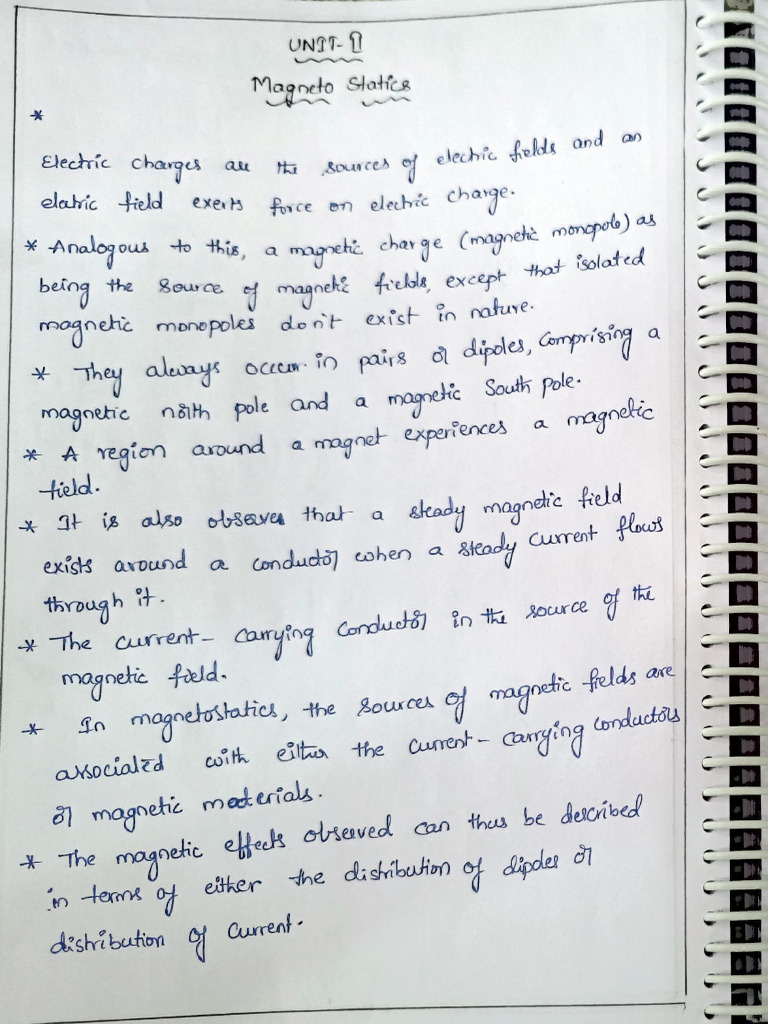 UNIT-II
Magneto Statics
*
Electric charges are the sources of electric fields and an
elatric field exerts force on electric charge.
* Analogous to this, a magnetic charge (magnetic monopole) as
being the source of magnetic fields, except that isolated
magnetic monopoles don't exist in nature.
* They always occur in pairs or dipoles, comprising a
magnetic north pole and a magnetic South pole.
* A region around a magnet experiences a magnetic
field.
* It is also observed that a steady magnetic field
exists around a conductor when a steady current flows
through it.
* The current- carrying conductor in the source of the
magnetic field.
* In magnetostatics, the sources of magnetic fields are
associated with either the current- carrying conductors
or magnetic materials.
* The magnetic effects observed can thus be described
in terms of either the distribution of dipoles or
distribution of current.